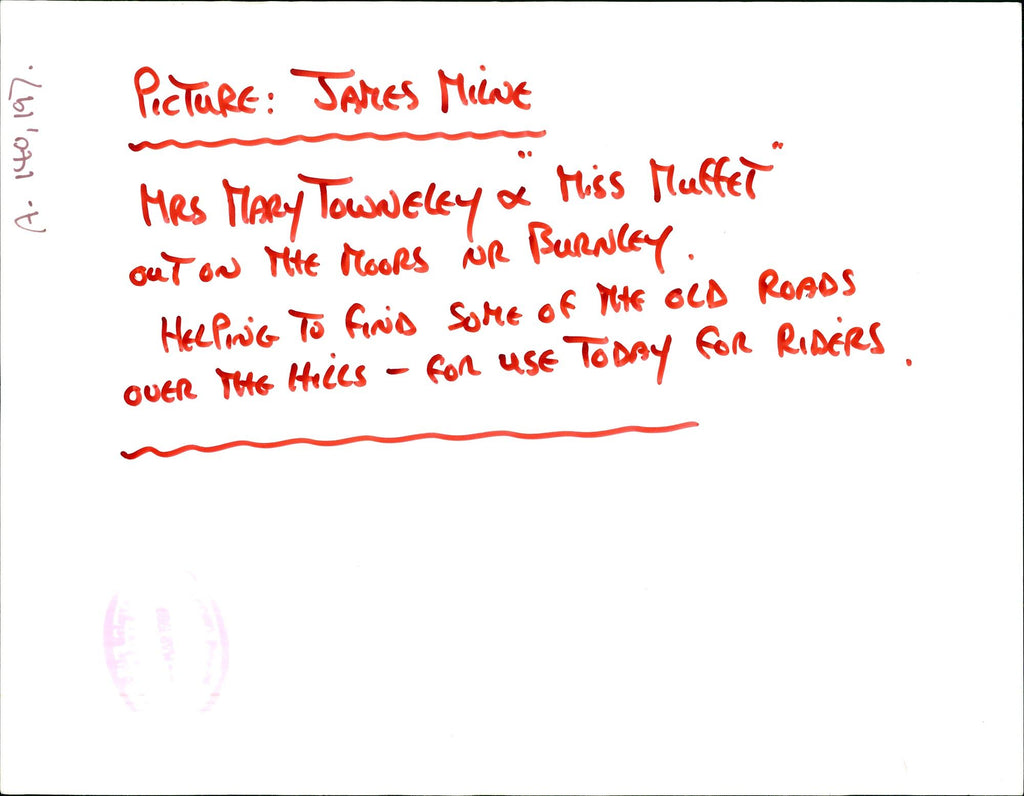 A. 140,197.
PICTURE: JAMES MILNE
MRS MARY TOWNELEY & "MISS MUFFET"
OUT ON THE MOORS NR BURNLEY.
HELPING TO FIND SOME OF THE OLD ROADS
OVER THE HILLS - FOR USE TODAY FOR RIDERS.